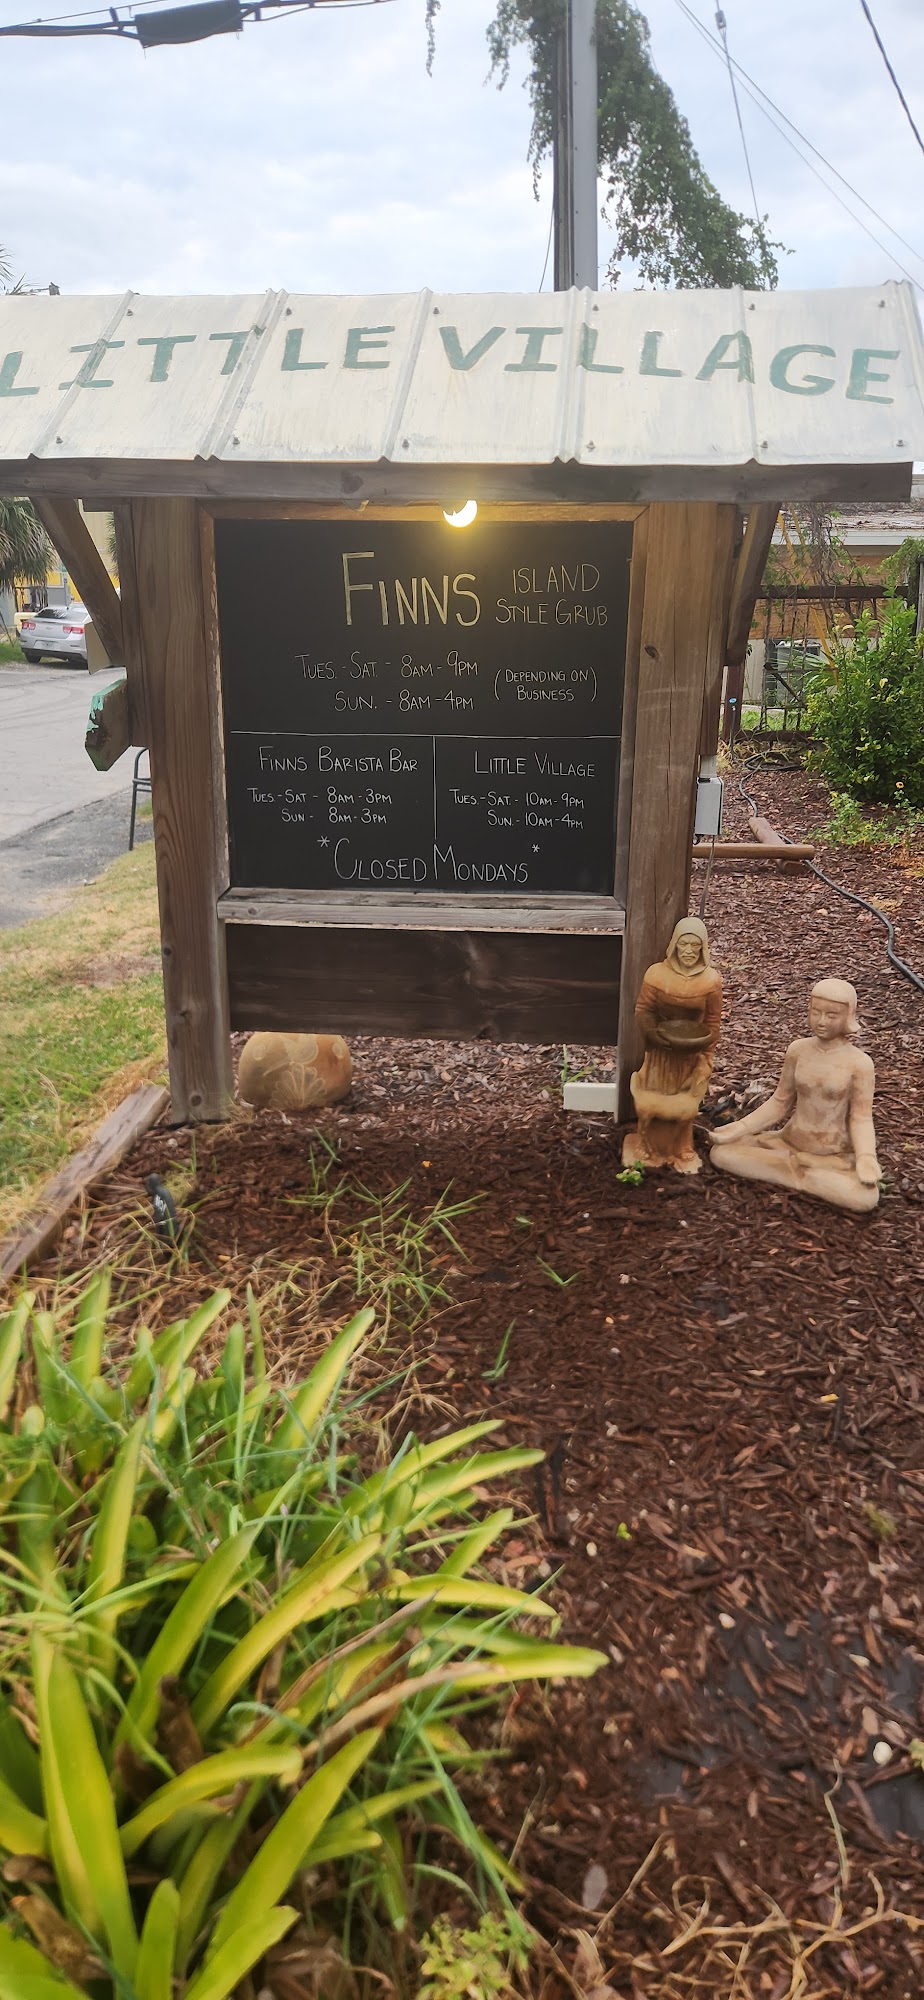 LITTLE VILLAGE
FINNS ISLAND STYLE GRUB
TUES.-SAT. - 8AM-9PM
SUN. - 8AM-4PM
(DEPENDING ON BUSINESS)
FINNS BARISTA BAR
TUES.-SAT - 8AM-3PM
SUN - 8AM-3PM
LITTLE VILLAGE
TUES.-SAT. - 10AM-9PM
SUN. - 10AM-4PM
*CLOSED MONDAYS*